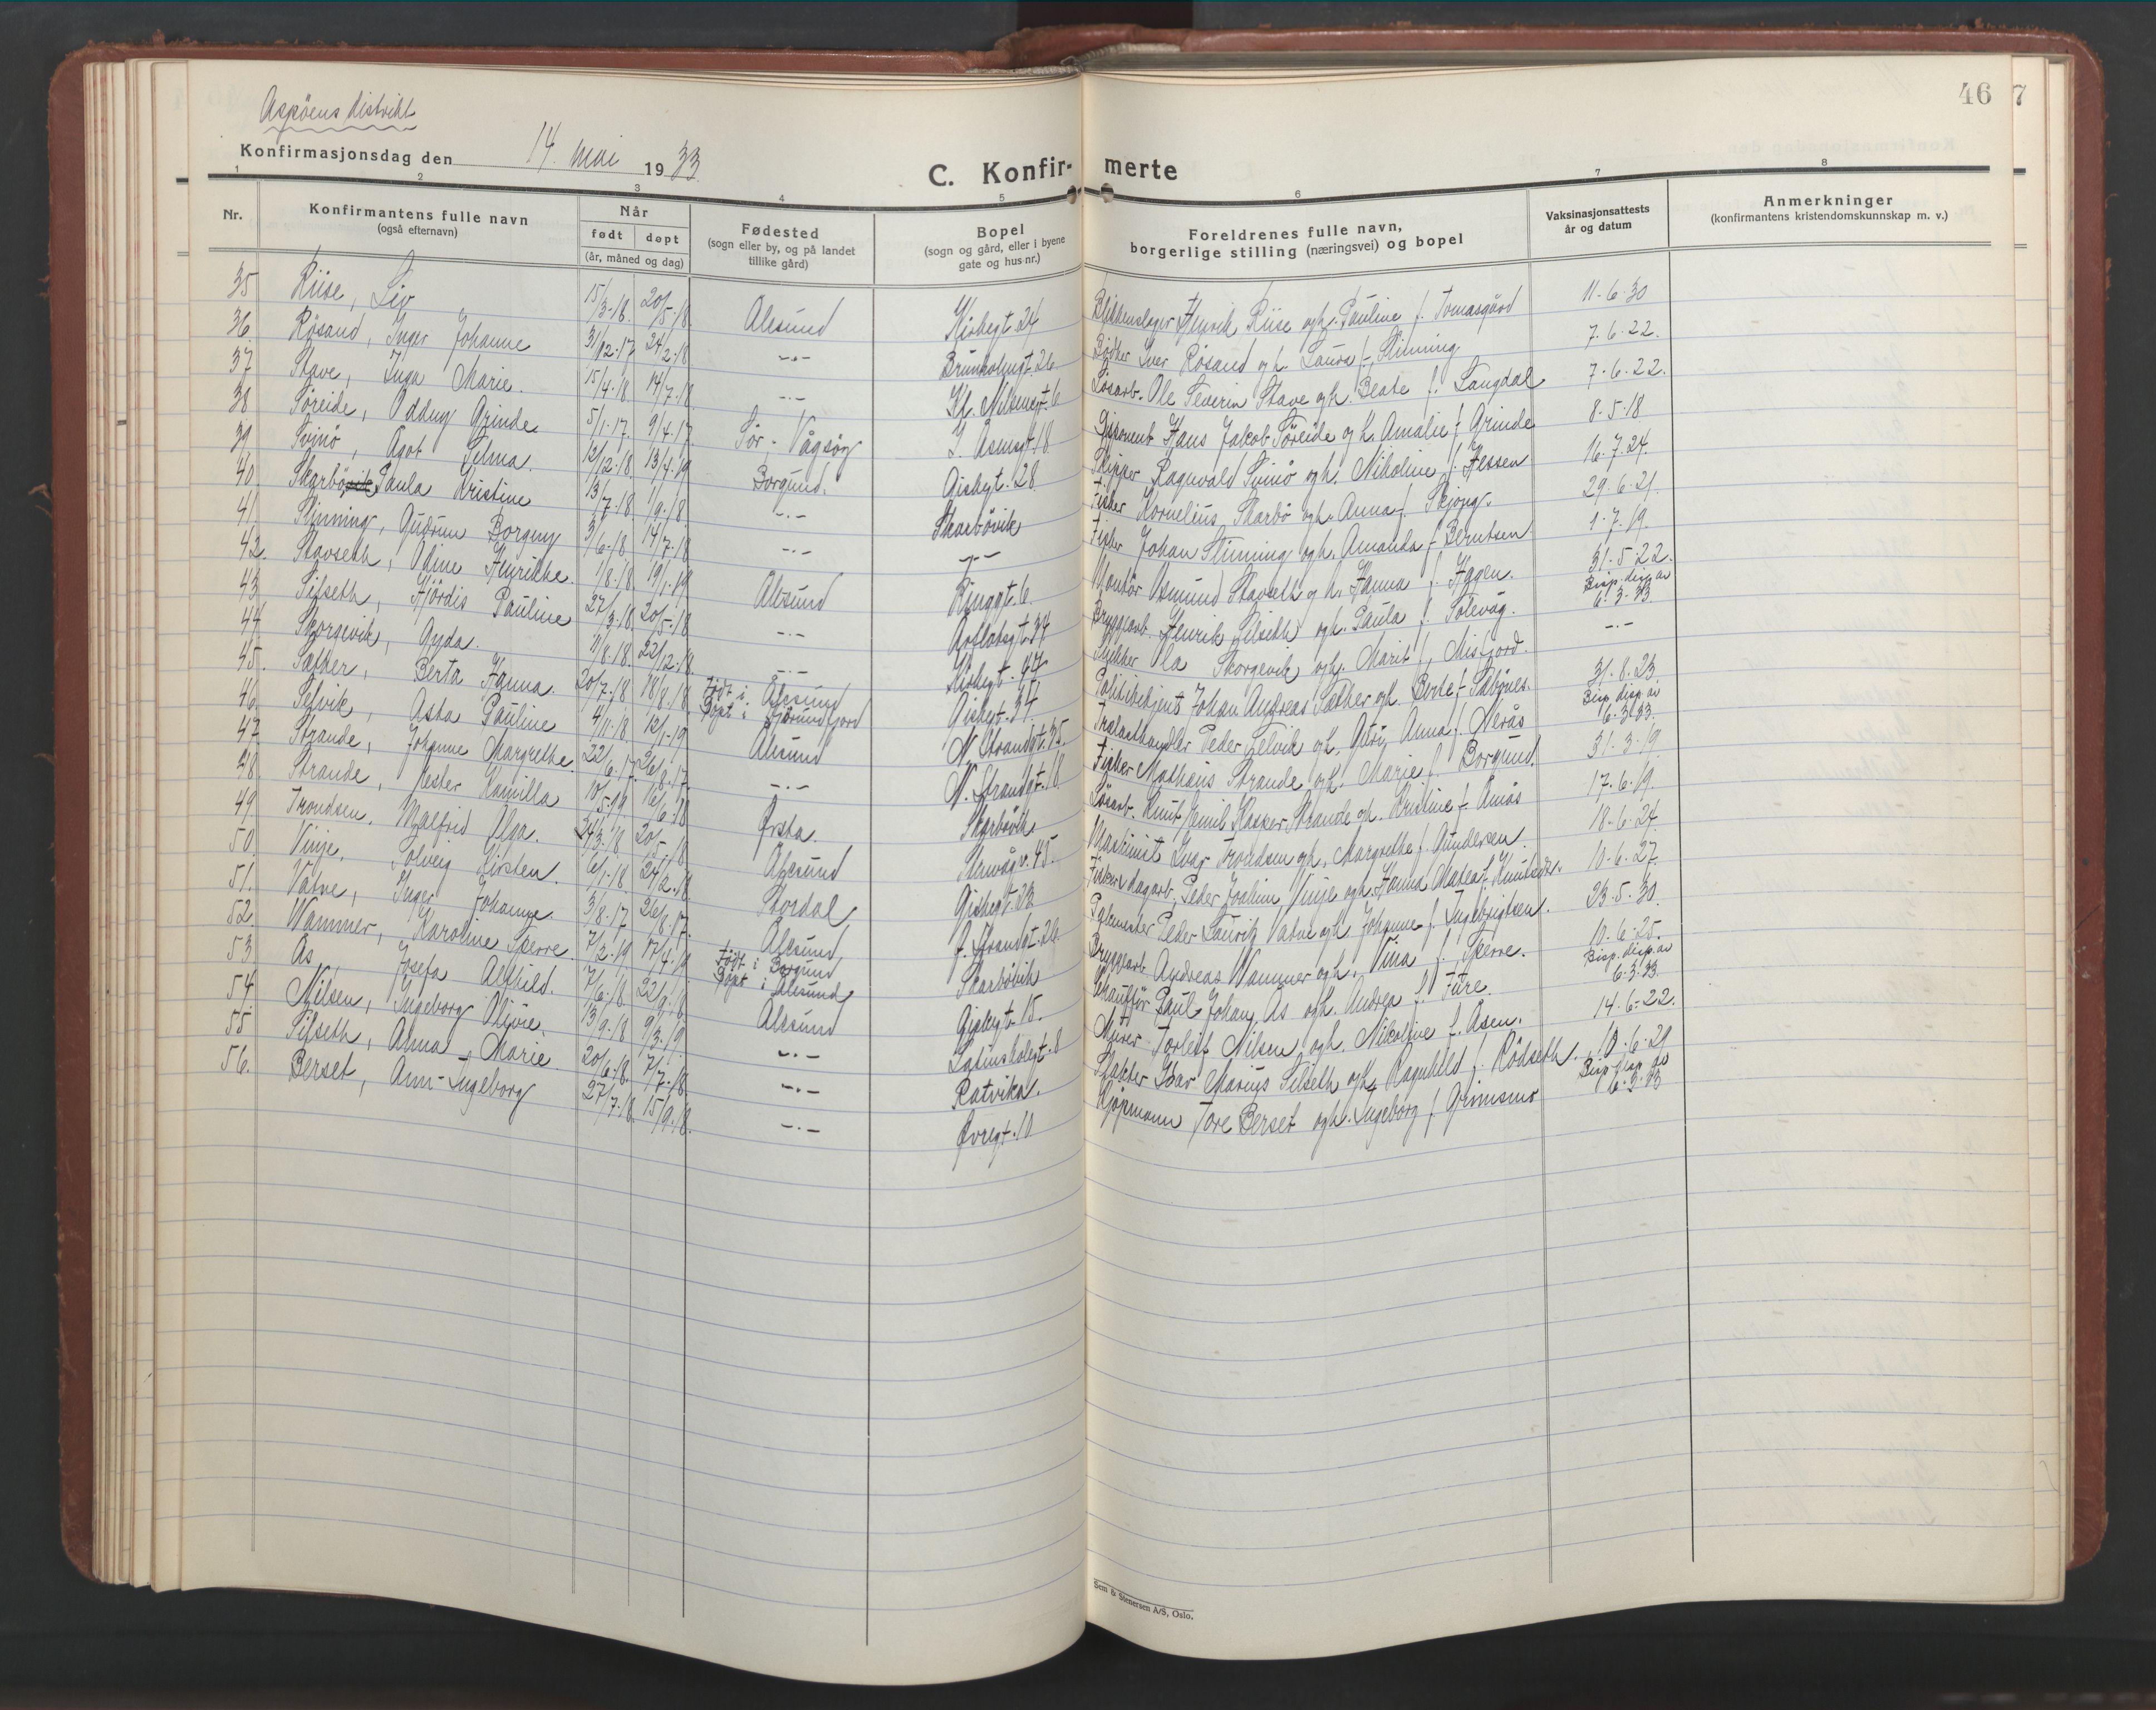 Aspöens distrikt
Konfirmasjonsdag den 14. mai 1933
C. Konfir- merte
46
7
1 2 3 4 5 6 7 8
Nr.
Konfirmantens fulle navn
(også efternavn)
Når
født døpt
(år, måned og dag)
Fødested
(sogn eller by, og på landet
tillike gård)
Bopel
(sogn og gård, eller i byene
gate og hus nr.)
Foreldrenes fulle navn,
borgerlige stilling (næringsvei) og bopel
Vaksinasjonsattests
år og datum
Anmerkninger
(konfirmantens kristendomskunnskap m. v.)
35 Riise, Liv 15/3-18. 20/5-18. Ålesund Kirkegt. 24 Blikkenslager Henrik Riise og h. Pauline f. Tomasgård 11-6-30
36. Røsand, Inger Johanne 31/12-17 24/2-18 -"- Brunholmgt. 26 Bödker Iver Røsand og h. Laura f. Slinning 7.6.22.
37 Stave, Inga Marie. 15/4-18 14/7-18 -"- Kh. Nilsensgt. 6 Løsarb. Ole Severin Stave og h. Beate f. Langdal 7-6-22.
38 Søreide, Oddny Grinde 5/1-17. 9/4-17 Sør-Vågsøy I. Åsensgt. 18. Disponent Hans Jakob Søreide og h. Amalie f. Grinde 8-5-18
39 Svinö, Ågot Selma. 12/12-18 13/4-19 Borgund. Giskegt. 28 Skipper Ragnvald Svinö og h. Nikoline f. Hessen 16.7.24.
40. Skarbö Paula Kristine 13/7-18 1/9-18. -"- Skarbövik Fisker Kornelius Skarbö og h. Anna f. Skjong. 29.6.21.
41 Slinning, Gudrun Borgny 3/6-18 14/7-18 -"- -"- Fisker Johan Slinning og h. Amanda f. Berntsen 1-7.19.
42. Stavseth, Odine Henrikke. 1/8-18. 19/1-19 Ålesund Ringgt. 6. Montör Asmund Stavseth og h. Hanna f. Hagen. 31.5.22.
43 Silseth, Hjördis Pauline 27/3-18. 20/5-18 -"- Apotekergt. 34 Bryggearb. Henrik Silseth og h. Paula f. Solevåg. Bisp. disp. av 6.3.33
44 Skorgevik, Gyda. 11/8-18. 22/12-18. -"- Kirkegt. 47 Snekker Ola Skorgevik og h. Marit f. Misfjord. -"-
45. Sæther, Berta Hanna. 20/7-18 18/8-18. Födt i Ålesund Döpt i Hjörundfjord Giskegt. 34 Politibetjent Johan Andreas Sæther og h. Berte f. Skbjnes. 31.8.23
46. Selvik, Asta Pauline 4/11-18 12/1-19 Ålesund N. Strandgt. 35. Trælasthandler Peder Selvik og h. Guri Anna f. Nerås Bisp. disp. av 6.3.33.
47. Strande, Johanne Margrethe. 22/6-17 26/8-17. -"- N. Strandgt. 18 Fisker Mathæus Strande og h. Marie f. Borgund. 31.3.19.
48. Strande, Nester Kamilla 10/5-19 16/6-18 Ørsta. Skarbövik Løsarb. Knut Emil Kasper Strande og h. Kristine f. Åmås 17-6.19.
49 Trondsen, Målfrid Olga. 24/3-18 20/5-18 Ålesund Stenvågv. 45. Maskinist Ivar Trondsen og h. Margrethe f. Gundersen. 18-6-24
50. Vinje, Solveig Kirsten. 6/1-18 24/2-18. Stordal Giskegt. 23 Fisker & dagarb. Peder Joakim Vinje og h. Hanna Matea f. Knutsdtr. 10-6-27.
51. Vatne, Inger Johanne. 3/8-17 26/8-17. Ålesund f. Strandgt. 26 Pakmester Peder Laurits Vatne og h. Johanne f. Ingebrigtsen. 23.5.30.
52. Wammer, Karoline Sperre. 7/2-19 17/4-19 Födt i Borgund Döpt i Ålesund Skarbövik Bryggearb. Andreas Wammer og h. Vina f. Sperre. 10-6-25.
53. Ås Josefa Alfhild. 7/6-18. 22/9-18. Ålesund Giskegt. 15. Chauffør Paul Johan Ås og h. Andrea f. Fure. Bisp. disp. av 6.3.33.
54. Nilsen, Ingeborg Olivie. 13/9-18 9/3-19. -"- Latinskolegt. 8 Murer Torleif Nilsen og h. Nikoline f. Åsen. 14.6.22.
55. Silseth, Alma Marie 20/6-18. 7/7-18 -"- Ratvika. Slakter Ivar Marius Silseth og h. Ragnhild f. Rödseth. 10-6-29
56. Berset, Ann-Ingeborg 27/7-18. 15/9-18. -"- Øvregt. 10 Kjøpmann Tore Berset og h. Ingeborg f. Grimsmo Bisp. disp. av 6.3.33
Sem & Stenersen A/S, Oslo.